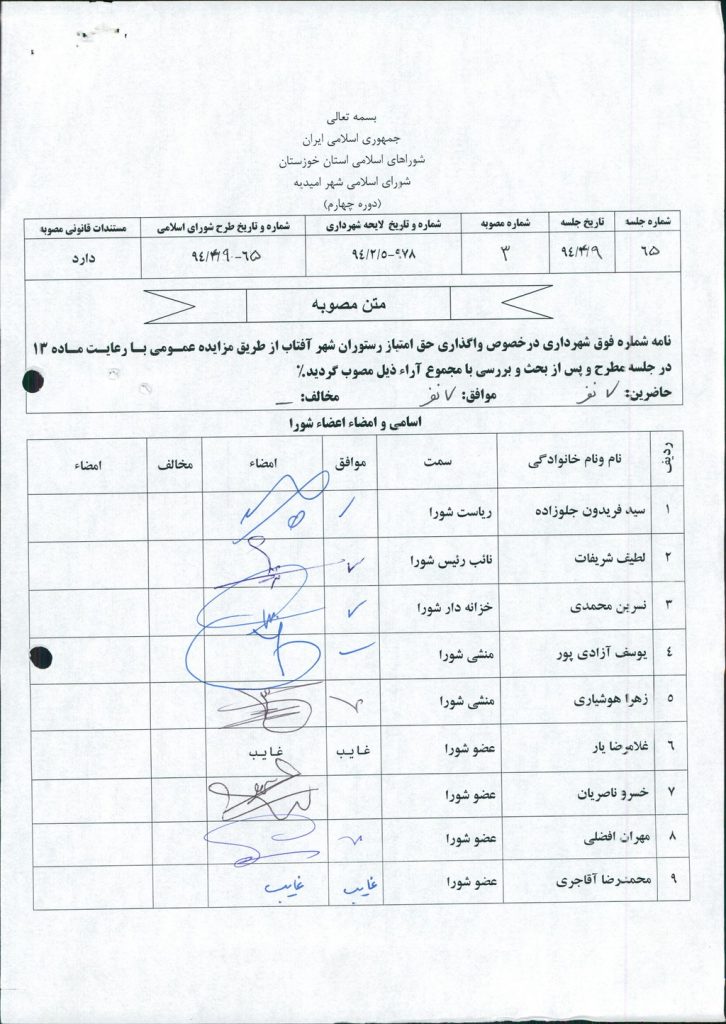 بسمه تعالی
جمهوری اسلامی ایران
شوراهای اسلامی استان خوزستان
شورای اسلامی شهر امیدیه
(دوره چهارم)
شماره جلسه تاریخ جلسه شماره مصوبه شماره و تاریخ لایحه شهرداری شماره و تاریخ طرح شورای اسلامی مستندات قانونی مصوبه
۶۵ ۹۴/۴/۹ ۳ ۹۴/۲/۵-۹۷۸ ۹۴/۴/۹-۶۵ دارد
متن مصوبه
نامه شماره فوق شهرداری درخصوص واگذاری حق امتیاز رستوران شهر آفتاب از طریق مزایده عمومی با رعایت ماده ۱۳
در جلسه مطرح و پس از بحث و بررسی با مجموع آراء ذیل مصوب گردید.٪
حاضرین: ۷ نفر موافق: ۷ نفر مخالف: _
اسامی و امضاء اعضاء شورا
ردیف نام ونام خانوادگی سمت موافق امضاء مخالف امضاء
۱ سید فریدون جلوزاده ریاست شورا
۲ لطیف شریفات نائب رئیس شورا
۳ نسرین محمدی خزانه دار شورا
۴ یوسف آزادی پور منشی شورا
۵ زهرا هوشیاری منشی شورا
۶ غلامرضا یار عضو شورا غایب غایب
۷ خسرو ناصریان عضو شورا
۸ مهران افضلی عضو شورا
۹ محمدرضا آقاجری عضو شورا غایب غایب